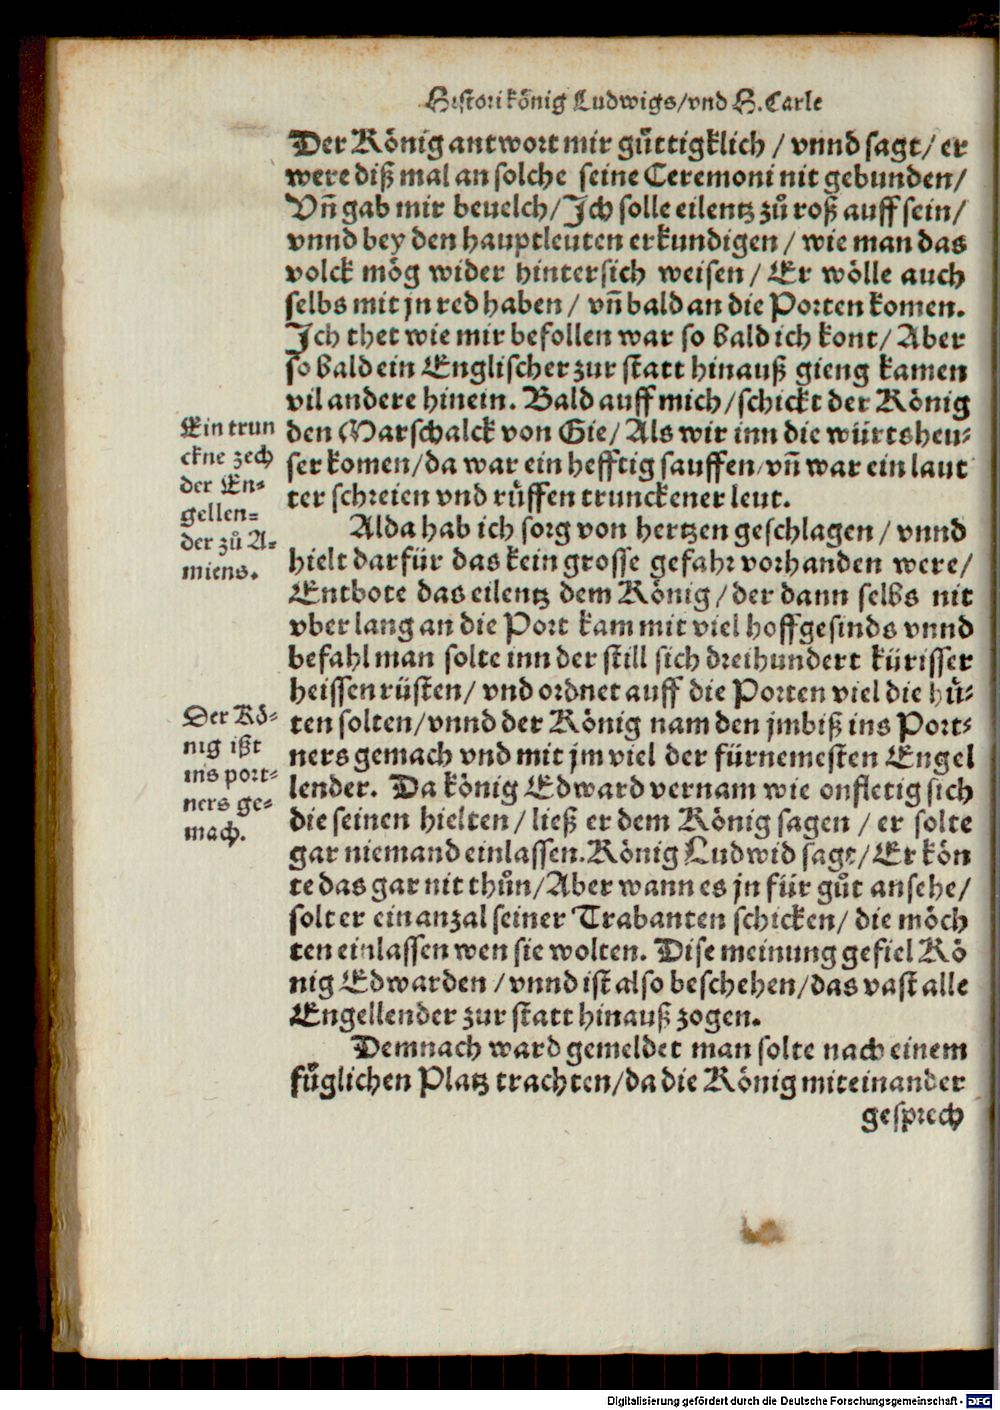 Histori könig Ludwigs/vnd H. Carle
Der König antwort mir gůttigklich / vnnd sagt/ er
were diß mal an solche seine Ceremoni nit gebunden/
Vñ gab mir beuelch/Ich solle eilentz zů roß auff sein/
vnnd bey den hauptleuten erkundigen / wie man das
volck mög wider hintersich weisen / Er wölle auch
selbs mit jn red haben / vñ bald an die Porten komen.
Ich thet wie mir befollen war so bald ich kont/ Aber
so bald ein Englischer zur statt hinauß gieng kamen
vil andere hinein. Bald auff mich/schickt der König
den Marschalck von Gie/ Als wir inn die würtsheu-
ser komen/da war ein hefftig sauffen/vñ war ein laut
ter schreien vnd růffen trunckener leut.
Ein trun
ckne zech
der En-
gellen-
der zů A-
miens.
Alda hab ich sorg von hertzen geschlagen / vnnd
hielt darfür das kein grosse gefahr vorhanden were/
Entbote das eilentz dem König/ der dann selbs nit
vber lang an die Port kam mit viel hoffgesinds vnnd
befahl man solte inn der still sich dreihundert kürisser
heissen rüsten/ vnd ordnet auff die Porten viel die hů-
ten solten/vnnd der König nam den jmbiß ins Port-
ners gemach vnd mit jm viel der fürnemesten Engel
lender. Da könig Edward vernam wie onfletig sich
die seinen hielten / ließ er dem König sagen / er solte
gar niemand einlassen. König Ludwid sagt/ Er kön
te das gar nit thůn/Aber wann es jn für gůt ansehe/
solt er ein anzal seiner Trabanten schicken/ die möch
ten einlassen wen sie wolten. Dise meinung gefiel Kö
nig Edwarden / vnnd ist also beschehen/das vast alle
Engellender zur statt hinauß zogen.
Der Kö-
nig ißt
ins port-
ners ge-
mach.
Demnach ward gemeldet man solte nach einem
fůglichen Platz trachten/da die König miteinander
gesprech
Digitalisierung gefördert durch die Deutsche Forschungsgemeinschaft - DFG